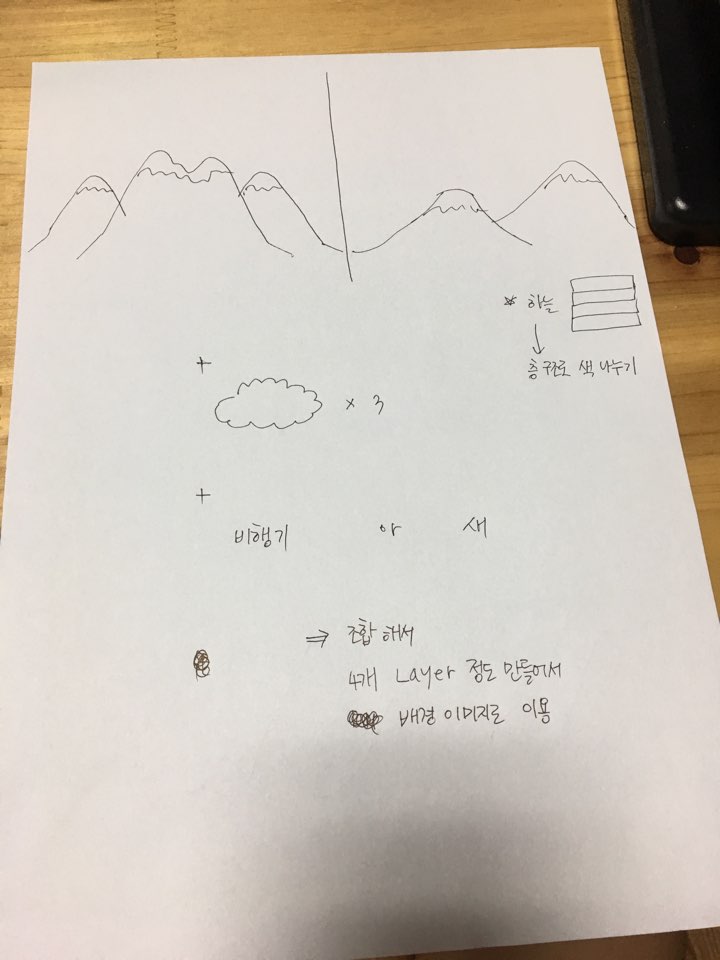 * 하늘
층구조로 색 나누기
+
x 3
+
비행기 아 새
⇒ 조합해서
4개 Layer 정도 만들어서
배경 이미지로 이용